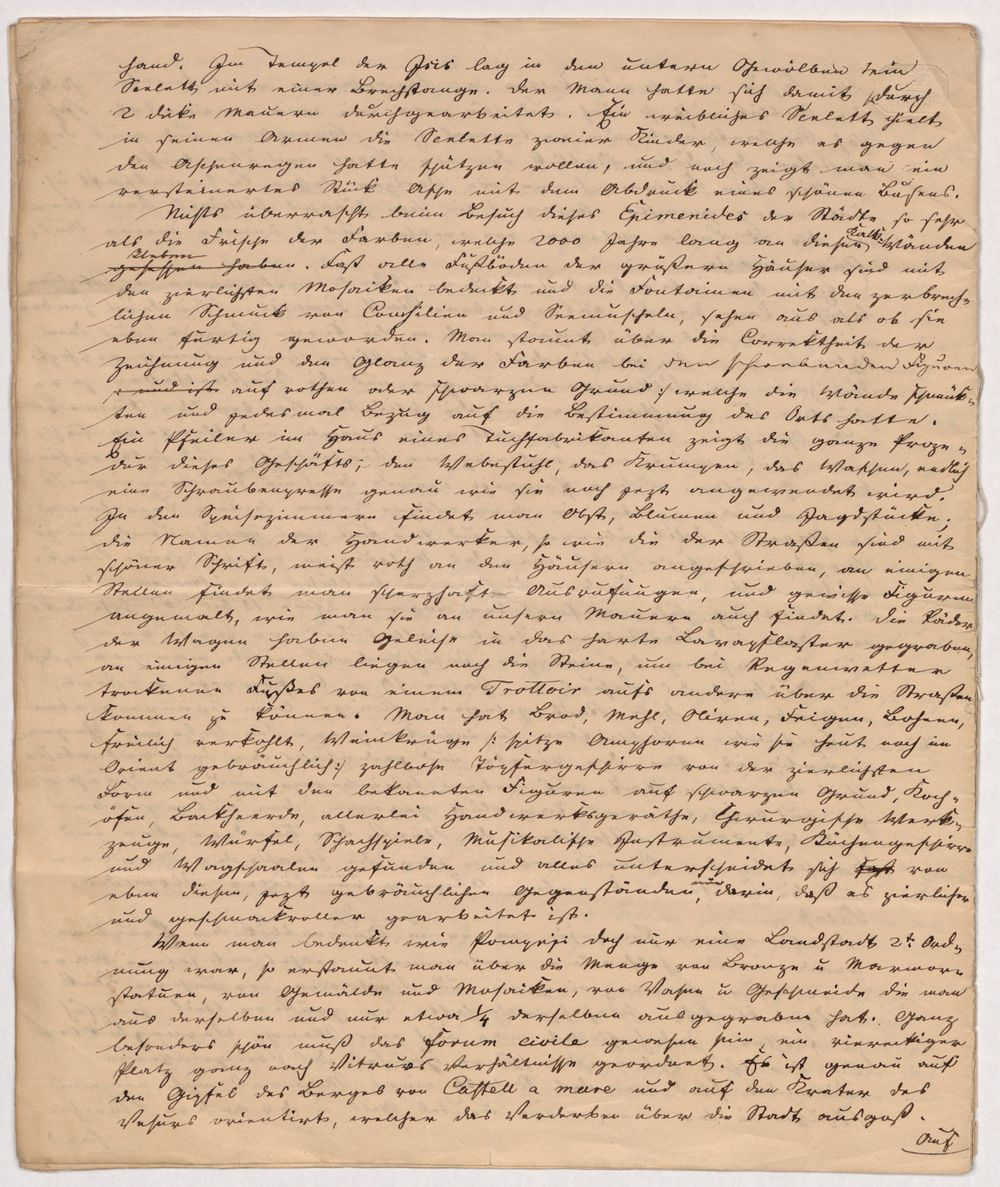 hand. Im Tempel der Isis lag in den untern Gewölben ein
Scelett mit einer Brechstange. Der Mann hatte sich damit durch
2 dicke Mauern durchgearbeitet. Ein weibliches Scelett hielt
in seinen Armen die Scelette zweier Kinder, welche es gegen
den Aschenregen hatte schützen wollen, und noch zeigt man ein
versteinertes Stück Asche mit dem Abdruck eines schönen Busens.
Nichts überrascht beim Besuch dieses Epimenides der Städte so sehr
als die Frische der Farben, welche 2000 Jahre lang an diesen Kalk: Wänden
kleben
gesessen haben. Fast alle Fußböden der größern Häuser sind mit
den zierlichsten Mosaiken bedeckt und die Fontainen mit den zerbrech-
lichen Schmuck von Conchilien und Seemuscheln, sehen aus als ob sie
eben fertig geworden. Man staunt über die Correktheit der
Zeichnung und den Glanz der Farben bei den schwebenden Figuren
und ist auf rothen oder schwarzen Grund :/ welche die Wände schmück-
ten und jedesmal Bezug auf die Bestimmung des Orts hatte.
Ein Pfeiler im Haus eines Tuchfabrikanten zeigt die ganze Proze-
dur dieses Geschäfts; den Webestuhl, das Krumpen, das Waschen, endlich
eine Schraubenpresse genau wie sie noch jezt angewendet wird.
In den Speisezimmern findet man Obst, Blumen und Jagdstücke;
die Namen der Handwerker, so wie die der Straßen sind mit
schöner Schrift, meist roth an den Häusern angeschrieben, an einigen
Stellen findet man scherzhaft Ausrufungen, und gewisse Figuren
angemalt, wie man sie an unsern Mauern auch findet. Die Räder
der Wagen haben Geleise in das harte Lavapflaster gegraben,
an einigen Stellen liegen noch die Steine, um bei Regenwetter
trockenen Fußes von einem Trottoir aufs andere über die Straßen
kommen zu können. Man hat Brod, Mehl, Oliven, Feigen, Bohnen,
freilich verkohlt, Weinkrüge /: spitze Amphoren wie sie heut noch im
Orient gebräuchlich :/ zahllose Töpfergeschirre von der zierlichsten
Form und mit den bekannten Figuren auf schwarzen Grund, Koch-
öfen, Backheerde, allerlei Handwerksgeräthe, Chirurgische Werk-
zeuge, Würfel, Schachspiele, Musikalische Instrumente, Küchengeschirre
und Wagschaalen gefunden und alles unterscheidet sich fast von
eben diesen, jezt gebräuchlichen Gegenständen, nur darin, daß es zierlicher
und geschmackvoller gearbeitet ist.
Wenn man bedenkt wie Pompeji doch nur eine Landstadt 2t Ord-
nung war, so erstaunt man über die Menge von Bronze u Marmor-
statuen, von Gemälde und Mosaiken, von Vasen u Geschmeide die man
aus derselben und nur etwa 1/4 derselben ausgegraben hat. Ganz
besonders schön muß das Forum civile gewesen sein, ein viereckiger
Platz ganz nach Vitruvs Verhältnisse geordnet. Es ist genau auf
den Gipfel des Berges von Castell a mare und auf den Krater des
Vesuvs orientirt, welcher das Verderben über die Stadt ausgoß.
Auf